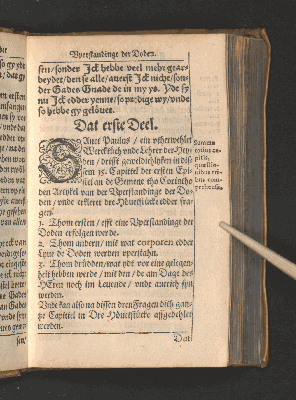 Vperstandinge der Doden.
sen/sonder Jck hebbe veel mehr gear-
beydet/den se alle/auerst Jck nicht/son-
der Gades Gnade de in my ys. Ydt sy
nu Jck edder yenne/so predige wy/vnde
so hebbe gy gelöuet.
Dat erste Deel.
SAnct Paulus / ein vtherwehlet
Wercktüch vnde Lehrer der Hey-
den / drifft geweldichliken in dis-
sem 15. Capittel der ersten Epi-
stel an de Gemene tho Corintho
den Artykel van der Vperstandinge der Do-
den / vnde erkleret dre Höuetstücke edder fra-
gen.
1. Thom ersten / efft eine Vperstandinge der
Doden erfolgen werde.
2. Thom andern / mit wat corporen edder
Lyue de Doden werden vperstahn.
3. Thom drüdden/wat ydt vor eine gelegen-
heit hebben werde / mit den / de am Dage des
HEren noch im Leuende / vnde nicht
werden.
Vnde kan also na dissen dren Fragen dith gan-
tze Capittel in Dre Höuetstücke affgedeelet
werden.
Dat
Summa
totius ca-
pitis,
quæstio-
nibus tri-
bus com-
prehensa.